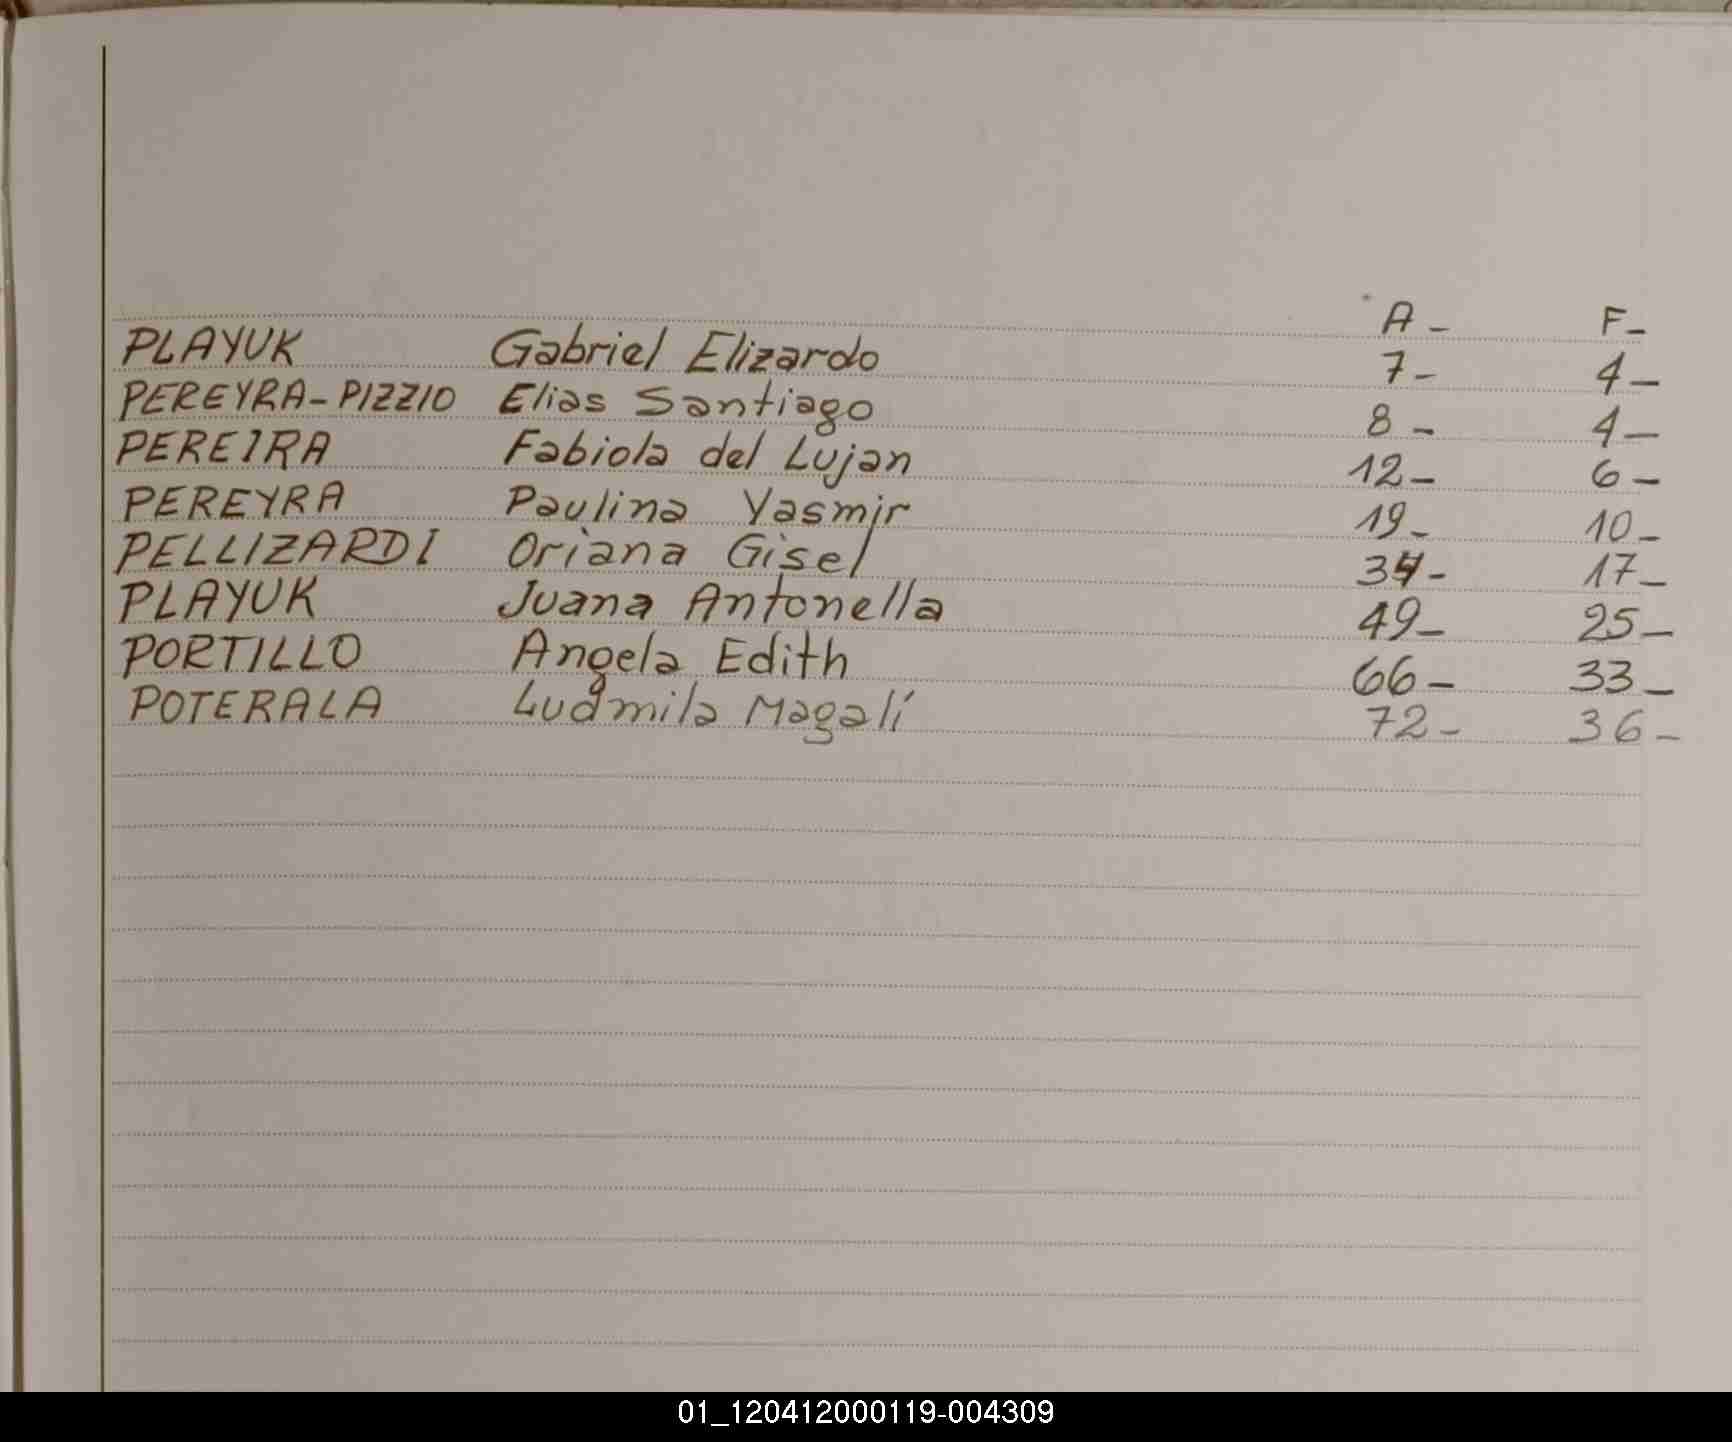 A - F-
PLAYUK Gabriel Elizardo 7- 4-
PEREYRA-PIZZIO Elias Santiago 8- 4-
PEREIRA Fabiola del Lujan 12- 6-
PEREYRA Paulina Yasmir 19- 10-
PELLIZARDI Oriana Gisel 34- 17-
PLAYUK Juana Antonella 49- 25-
PORTILLO Angela Edith 66- 33-
POTERALA Ludmila Magalí 72- 36-
01_120412000119-004309